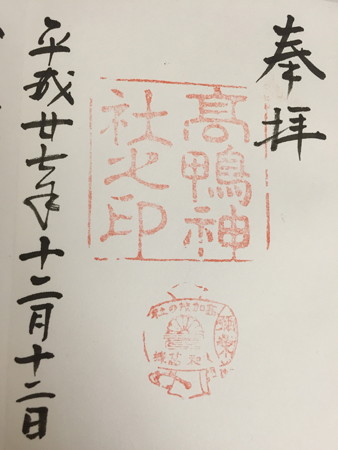 奉拝
髙鴨神
社之印
平成廿七年十二月十二日